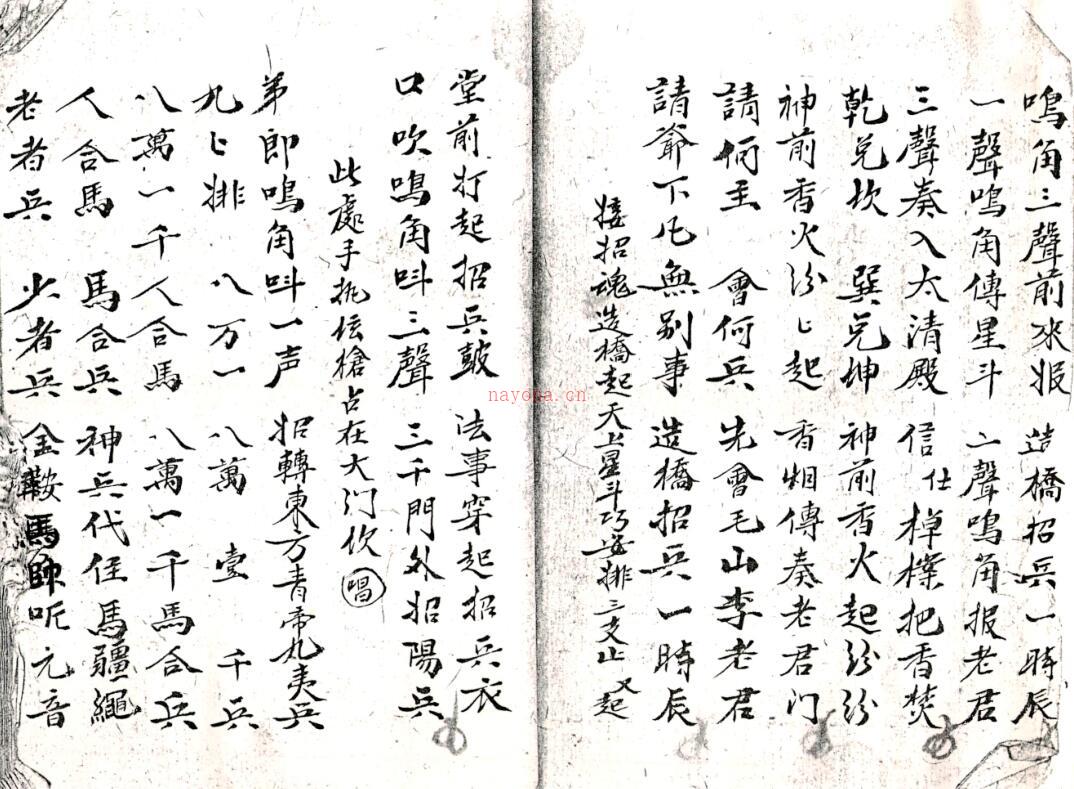 鳴角三聲前來报 造橋招兵一時辰
一聲鳴角傳星斗 二聲鳴角报老君
三聲奏入太清殿 信仕棹櫟把香焚
乾兑坎 巽兑坤 神前香火起紛紛
神前香火紛〻起 香烟傳奏老君门
請何王 會何兵 先會毛山李老君
請爺下凡無别事 造橋招兵一時辰
接招魂造橋起天上星斗巧安排三支止又起
堂前打起招兵鼓 法事穿起招兵衣
口吹鳴角呌三聲 三千門外招陽兵
此處手执坛槍占在大门伙 唱
弟郎鳴角呌一声 招轉東方青帝九夷兵
九〻排 八万一 八萬壹千兵
八萬一千人合馬 八萬一千馬合兵
人合馬 馬合兵 神兵代任馬疆繩
老者兵 少者兵 金鞍馬帥呃元音
nayona.cn